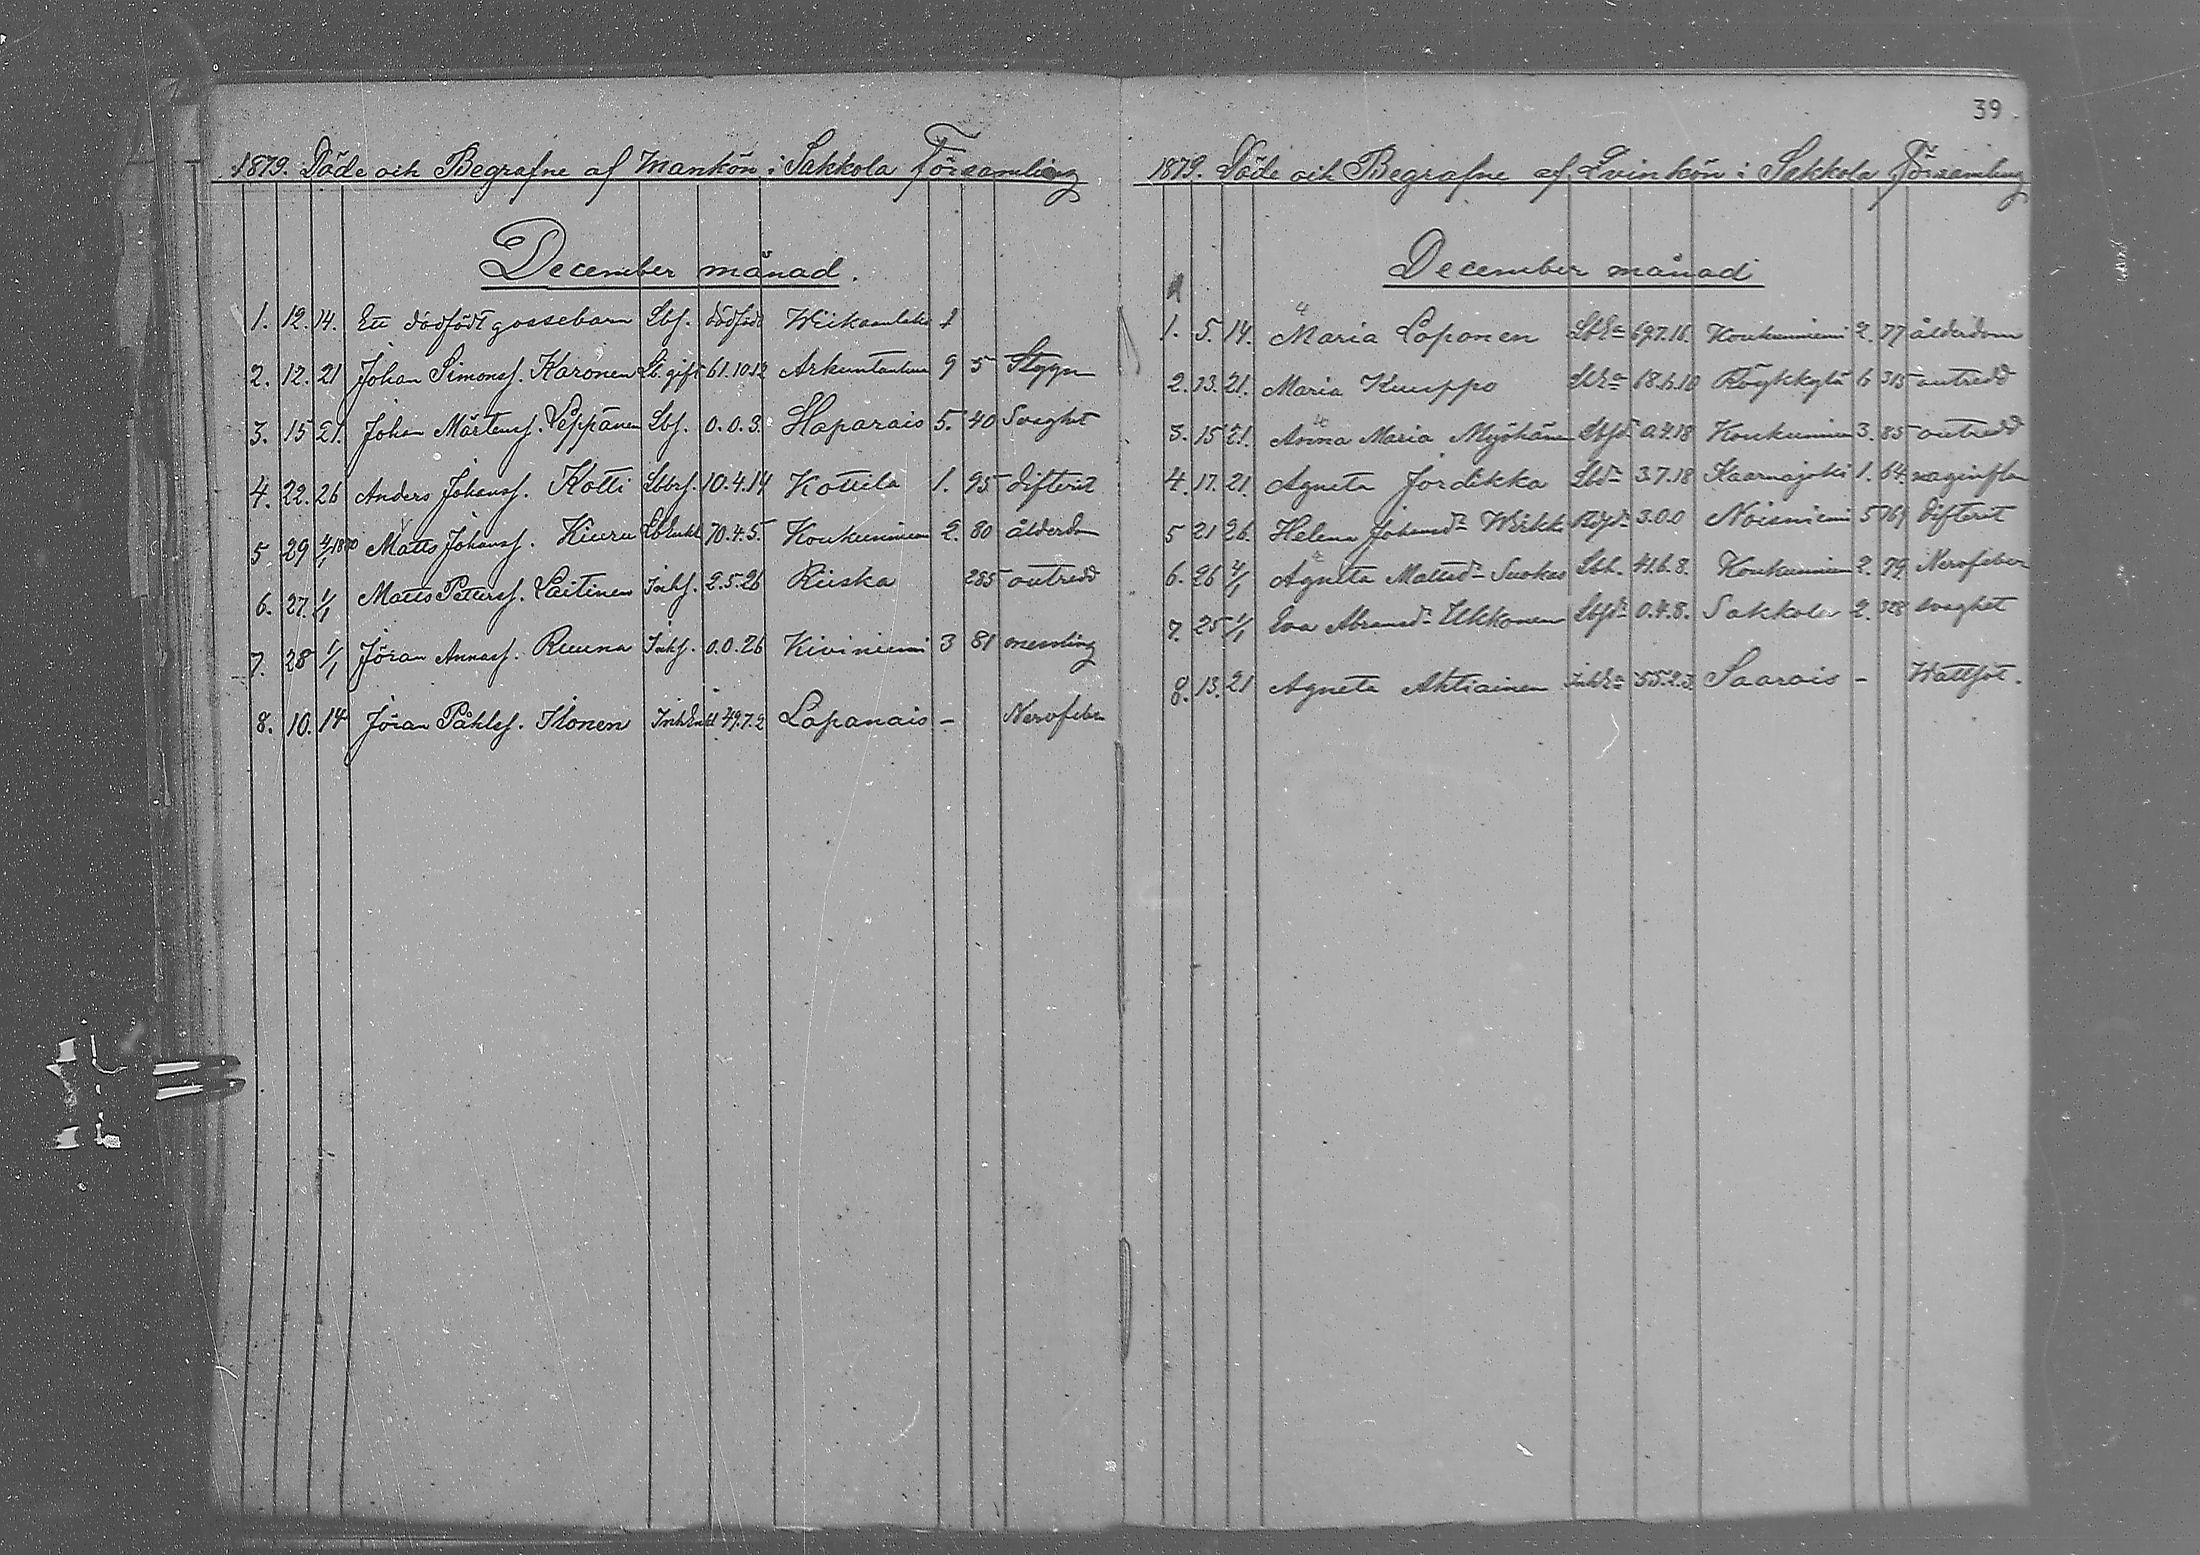 39.
1879. Döde och Begrafne af Mankön i Sakkola Församling
December månad.
1. 12. 14. Ett dödfödt gossebarn Lbs. dödfödt 1
2. 12. 21 Johan Simonss. Karonen Lb. gift 61.10.12 9 5 Styggn
3. 15 21. Johan Mårtenss. Leppänen Lbs. 0.0.3. Haparais 5. 40 Svaghet
4. 22. 26 Anders Johanss. Kotti 10.4.14 Kottila 1. 95 difterit
5 29 4/1 1880 Matts Johanss. Kiuru Lb Enkl 70.4.5. Koukunniemi 2. 80 ålderdom
6. 27. 1/1 Matts Petterss. Laitinen Inhs. 2.5.26 Riiska 285 outredd
7. 28 1/1 Jöran Annass. Ruuna Inhs. 0.0.26 Kiviniemi 3 81 messling
8. 10. 14 Jöran Påhlss. Ilonen Inh Enkl 49.7.2 Lapanais - Nervfeber
1879. Döde och Begrafne af Qvinkön i Sakkola Församling
December månad
1. 5. 14. Maria Loponen 69.7.16. Koukunniemi 2. 77 ålderdom
2. 13. 21. Maria Kuuppo 68.6.10 6 315 outredd
3. 15 21. Anna Maria Myöhänen 0.4.18 Koukunniemi 3. 85 outredd
4. 17. 21. Agneta Jordikka 3.7.18 Kaarnajoki 1. 64
5 21 26. Helena Johansdr 3.0.0 Noisniemi 5 difterit
6. 26 4/1 Agneta Mattsdr Suokas Lbh. 41.6.8. Koukunniemi 2. 79. Nervfeber
7. 25 1/1 Eva Abramsdr Ukkonen 0.4.8. Sakkola 2. 328 svaghet
8. 13. 21 Agneta Ahtiainen 55.2.3 Saarois - Wattsot.